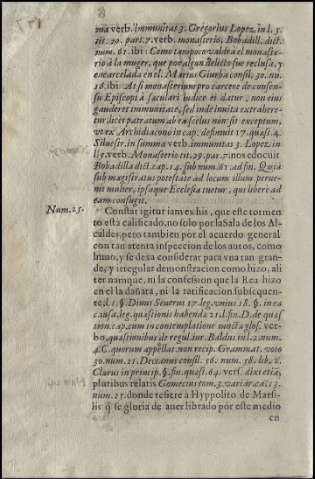 8
ma verb. immunitas 3. Gregorius Lopez, in l. 5.
tit. 29. par. 7. verb. monasterio, Bobadill. dict.
num. 61. ibi: Como tampoco valdrà el monaste-
rio à la muger, que por algun delicto fue reclusa, y
encarcelada en el. Marius Giurba consil. 30. nu.
16. ibi: At si monasterium pro carcere de consen-
su Episcopi à sæculari iudice ei datur, non eius
gaudere immunitate, sed inde inuita extrahere-
tur dicet patratum ab ea scelus non sit exceptum,
ut ex Archidiacono in cap. definuit 17. quæst. 4.
Siluestr. in summa verb. immunitas 3. Lopez, in
l. 5. verb. Monasterio tit. 29. par. 7. nos edocuit
Bobadilla dict. cap. 14. sub num. 61. ad fin. Quia
sub magistratus potestate ad locum illum perue-
nit mulier, ipsaque Ecclesia tuetur, qui liberè ad
eam confugit.
Num. 25.
Constat igitur iam ex his, que este tormen
to està calificado, no solo por la Sala de los Al-
caldes, pero tambien por el acuerdo general
con tan atenta inspeccion de los autos, como
hizo, y se dexa considerar para vna tan gran-
de, y irregular demonstracion como hizo, ali
ter namque, ni la confession que la Rea hizo
en el la dañara, ni la ratificacion subsequen-
te, l. 1. §. Diuus Seuerus 17. leg. vnius 18. §. in ea
causa, leg. quæstionis habenda 21. d. fin. D. de quæs
tion. cap. cum in contemplatione vbi cta glos. ver-
bo. quæstionibus de regul. iur. Baldus in l. 2. num.
4. C. quorum appellat. non recip. Grammat. voto
30. num. 21. Decianus consil. 36. num. 38. lib. 2.
Clarus in princip. §. fin. quæst. 64. vers. dixi etiã,
pluribus relatis Gomecius tom. 3. variar. cap. 13.
num. 25. donde refiere à Hyppolito de Marsi-
lijs que se gloria de auer librado por este medio
en